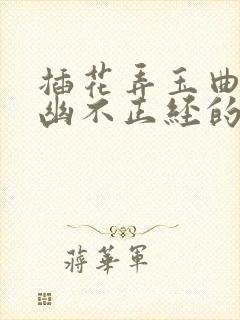 插花弄玉曲
幽不正经的
蒋华军